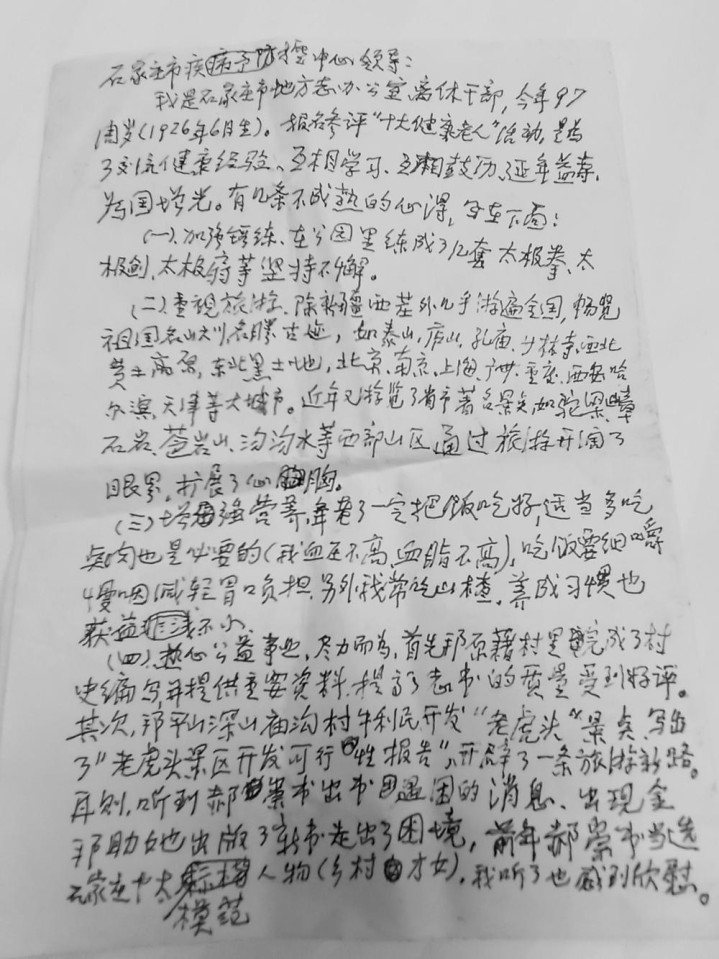 石家庄市疾病予防控中心领导：
我是石家庄市地方志办公室离休干部，今年97
周岁(1926年6月生)。报名参评“十大健康老人”活动，是为
了交流健康经验、互相学习、互相鼓历、延年益寿、
为国增光。有几条不成熟的心得，写在下面：
(一)、加强锻练、在公园里练成了几套太极拳、太
极剑、太极扇等坚持不懈。
(二)、重视旅游、除新疆西芷外几乎游遍全国，畅览
祖国名山大川名胜古迹，如泰山、庐山、孔庙、少林寺、西北
黄土高原，东北黑土地，北京、南京、上海、广州、重庆、西安、哈
尔滨、天津等大城市。近年又游览了省市著名景点如驼梁、嶂
石岩、苍岩山、沕沕水等西部山区通过旅游开阔了
眼界，扩展了心胸。
(三)、增强营养，年老了一定把饭吃好，适当多吃
点肉也是必要的(我血压不高，血脂不高)，吃饭要细嚼
慢咽减轻胃口负担，另外我常吃山楂，养成习惯也
获益不小
(四)、热心公益事业，尽力而为，首先邦原藉村里完成了村
史编写，并提供重要资料，提高了志书的质量受到好评。
其次，邦平山深山庙沟村牛利民开发“老虎头”景点，写出
了“老虎头景区开发可行性报告”，开辟了一条旅游新路。
再则，听到郝崇书出书遇困的消息、出现金
邦助她出版了新书走出了困境，前年郝崇书当选
石家庄十大人物(乡村才女)，我听了也感到欣慰。
模范